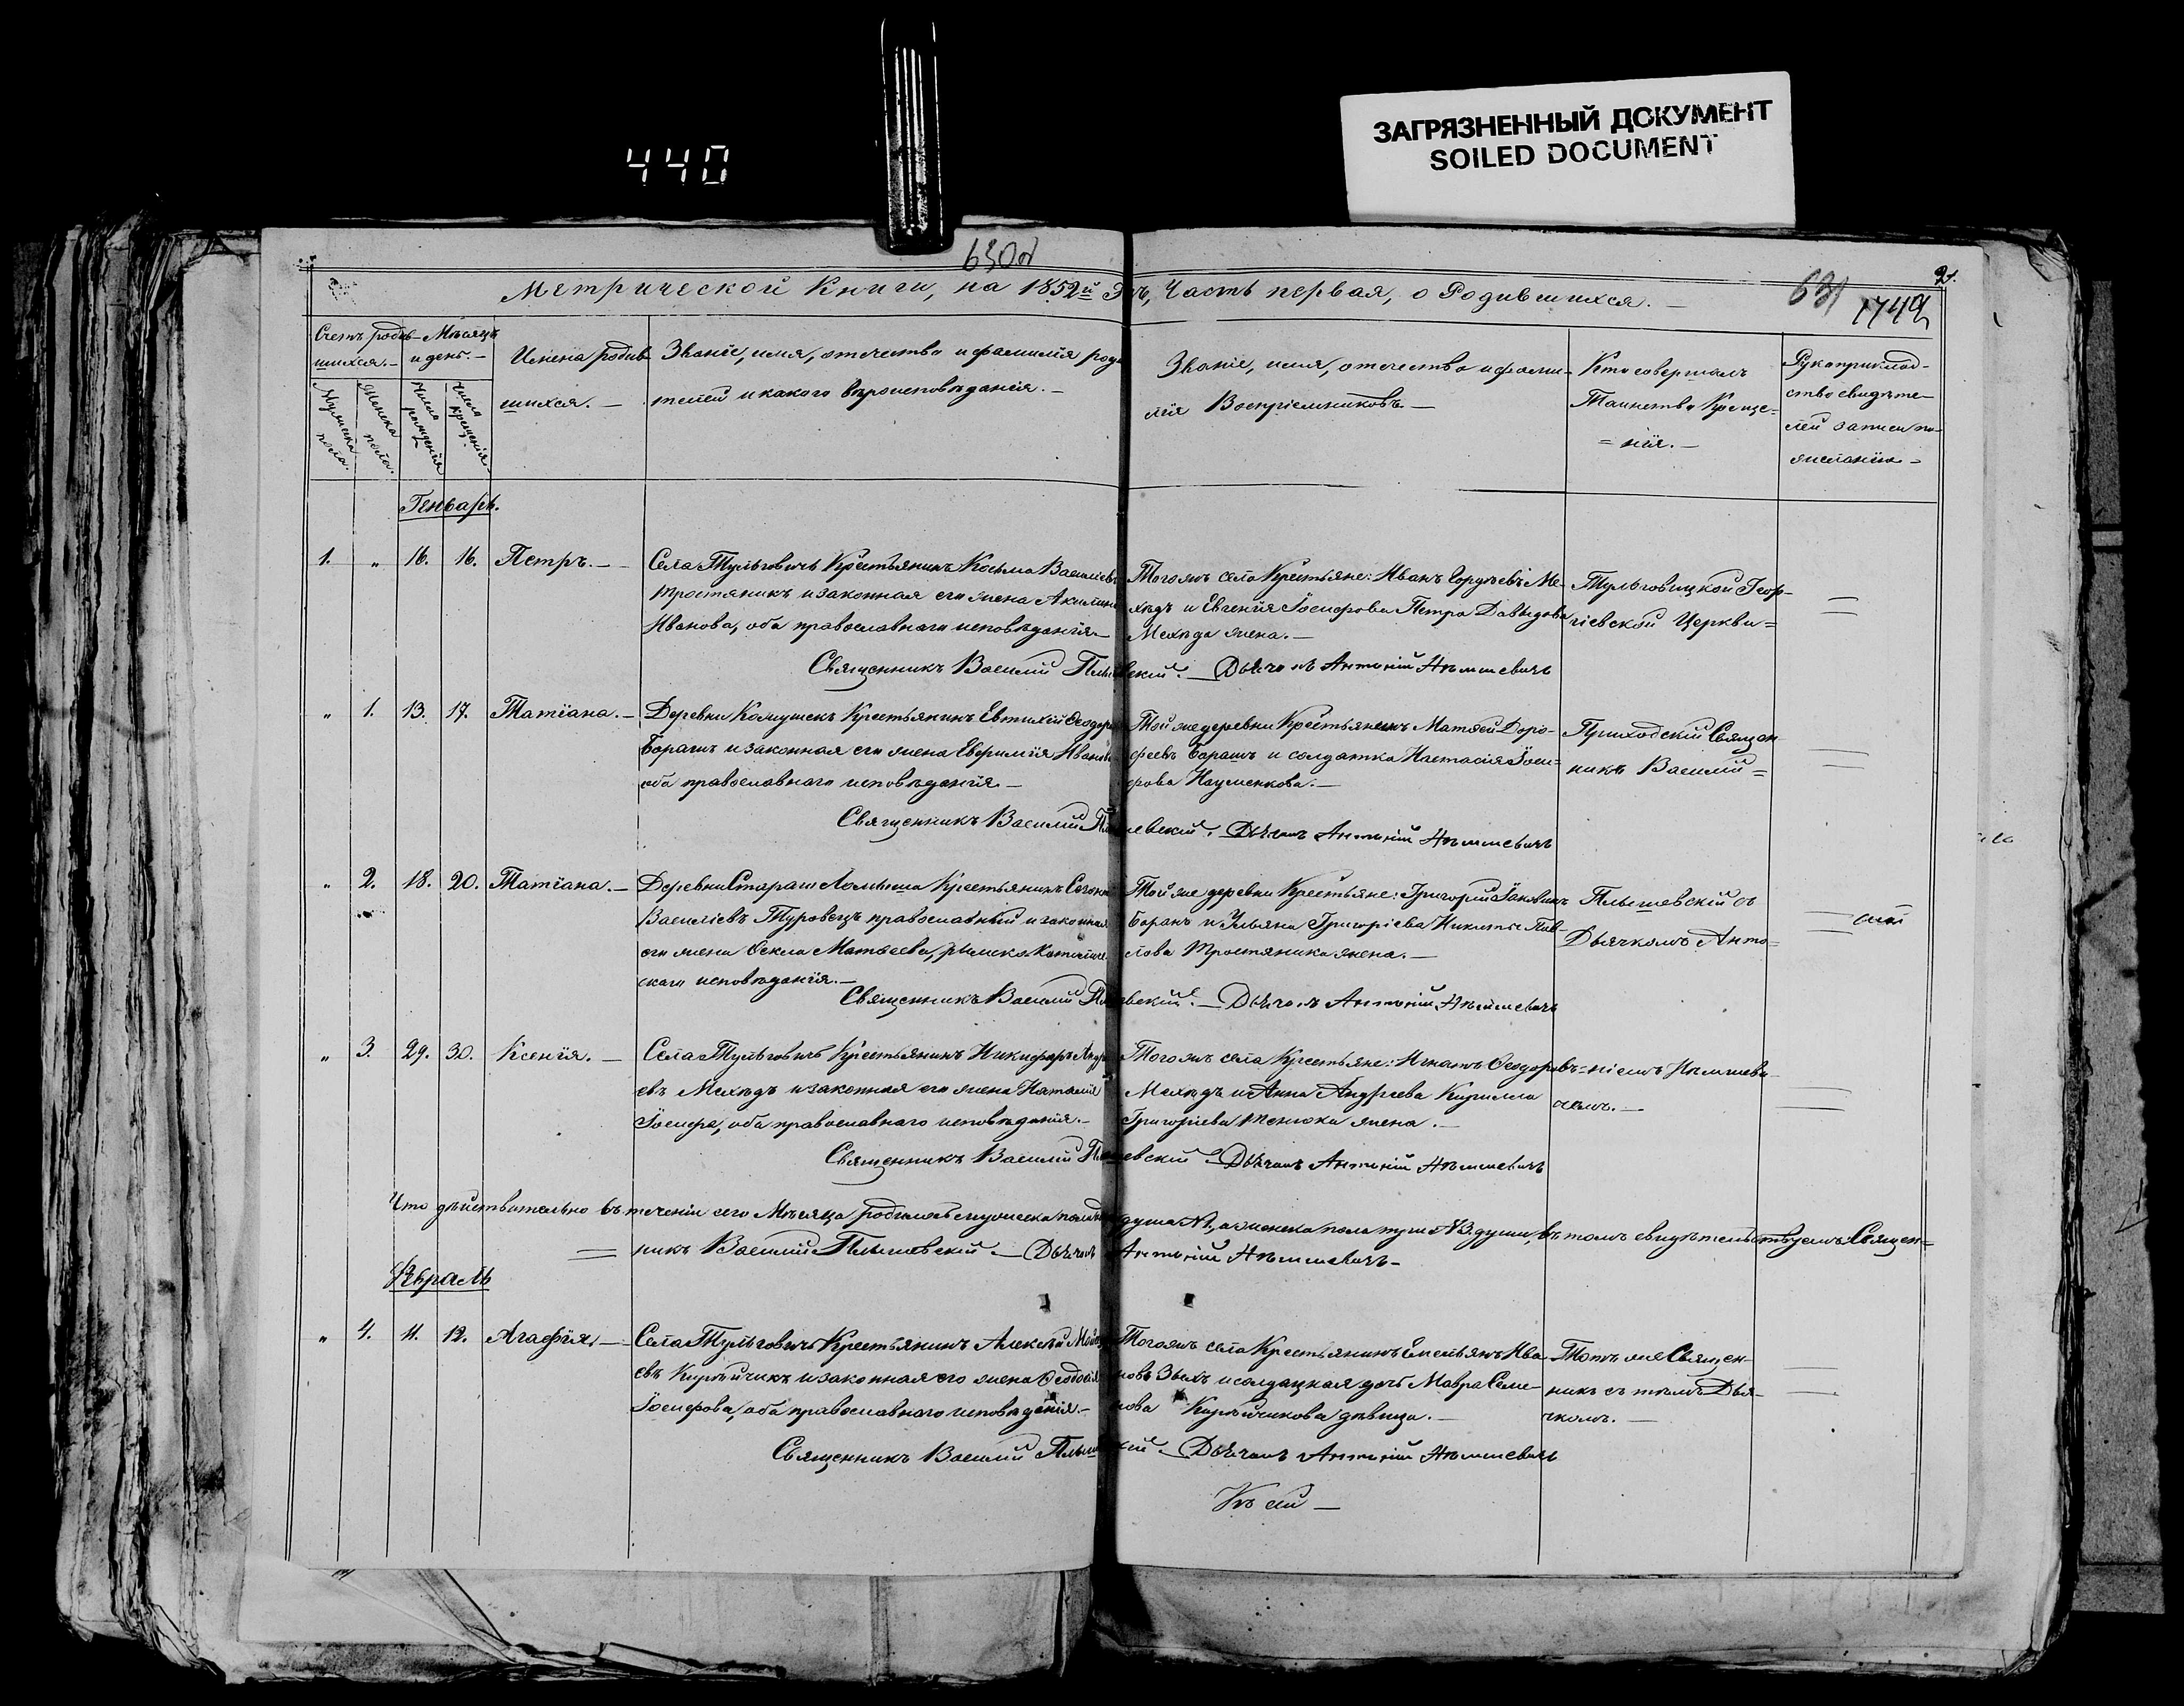 440
ЗАГРЯЗНЕННЫЙ ДОКУМЕНТ
SOILED DOCUMENT
630об
631
2.
1749
Метрической Книги, на 1852й Годъ, Часть первая, о Родившихся.—
Счетъ родив-
шихся.—
Мѣсяцъ
и день.—
Мужеска
пола.
Женска
пола.
Число
рожденія
Число
крещенія.
Имена родив-
шихся.—
Званіе, имя, отечество и фамилія роди
телей и какого вѣроисповѣданія.—
Званіе, имя, отечество и фами-
лія Воспріемниковъ.—
Кто совершалъ
Таинство Креще=
=нія.—
Рукоприклад-
ство свидѣте-
лей записи по-
желанію—
Генварь.
1. „ 16. 16. Петръ.—
Села Тульговичъ Крестьянинъ Косьма Василіевъ
Тростяникъ и законная его жена Акилина
Иванова, оба православнаго исповѣданія—
Тогожъ села Крестьяне: Иванъ Мe-
хѣдъ и Евгенія Іосифова Петра Давидова
Мехѣда жена.—
Тульговицкой Геор-
гіевской Церкви=
Священникъ Василій Плышевскій.— Дьячокъ Антоній Нѣмшевичъ
„ 1. 13. 17. Татіана.—
Деревни Кожушекъ Крестьянинъ Евтихій Ѳеодоро
Барашъ и законная его жена Евфимія Иванова
оба православнаго исповѣданія.—
Той же деревни Крестьянинъ Матѳей Доро-
феевъ Барашъ и солдатка Настасія Іоси=
фова Науменкова.—
Приходскій Священ
никъ Василій=
Священникъ Василій Плышевскій. Дьячокъ Антоній Нѣмшевичъ
„ 2. 18. 20. Татіана.—
Деревни Стараш Ломыша Крестьянинъ
Василіевъ Туровецъ православный и законная
его жена Ѳекла Матвеева, римско Католиче
скаго исповѣданія.—
Той же деревни Крестьяне: Григорій Іаковлевъ
Баранъ и Ульяна Григоріева Никиты Пав-
лова Тростяника жена.—
Плышевскій съ
Дьячкомъ Анто=
Священникъ Василій Плышевскій.— Дьячокъ Антоній Нѣмшевичъ
„ 3. 29. 30. Ксенія.—
Села Тульговичъ Крестьянинъ Никифоръ Андре
евъ Мехѣдъ и законная его жена Наталія
Іосифа, оба православнаго исповѣданія.—
Тогожъ села Крестьяне: Игнатъ Ѳеодоровъ
Мехѣдъ и Анна Андреева Кирилла
Григоріева Тенюка жена.—
=ніемъ Нѣмшеви-
чемъ.—
Священникъ Василій Плышевскій.— Дьячокъ Антоній Нѣмшевичъ
Что дѣйствительно въ теченіи сего Мѣсяца родилось мужеска пола душа №1, а женска пола три №3 души, въ томъ свидѣтельствуемъ Священ=
никъ Василій Плышевскій.— Дьячокъ Антоній Нѣмшевичъ—
Февраль
„ 4. 11. 12. Агафія.—
Села Тульговичъ Крестьянинъ Алексѣй Мойсе
евъ Кирѣйчикъ и законная его жена Ѳеодосія
Іосифова, оба православнаго исповѣданія.—
Тогожъ села Крестьянинъ Емельянъ Ива-
новъ Зыль и солдацкая дочь Мавра Семе-
нова Кирѣйчикова дѣвица.—
Тотъ же Священ-
никъ съ тѣмъ Дья-
чкомъ.—
Священникъ Василій Плышевскій.— Дьячокъ Антоній Нѣмшевичъ
Къ сей—